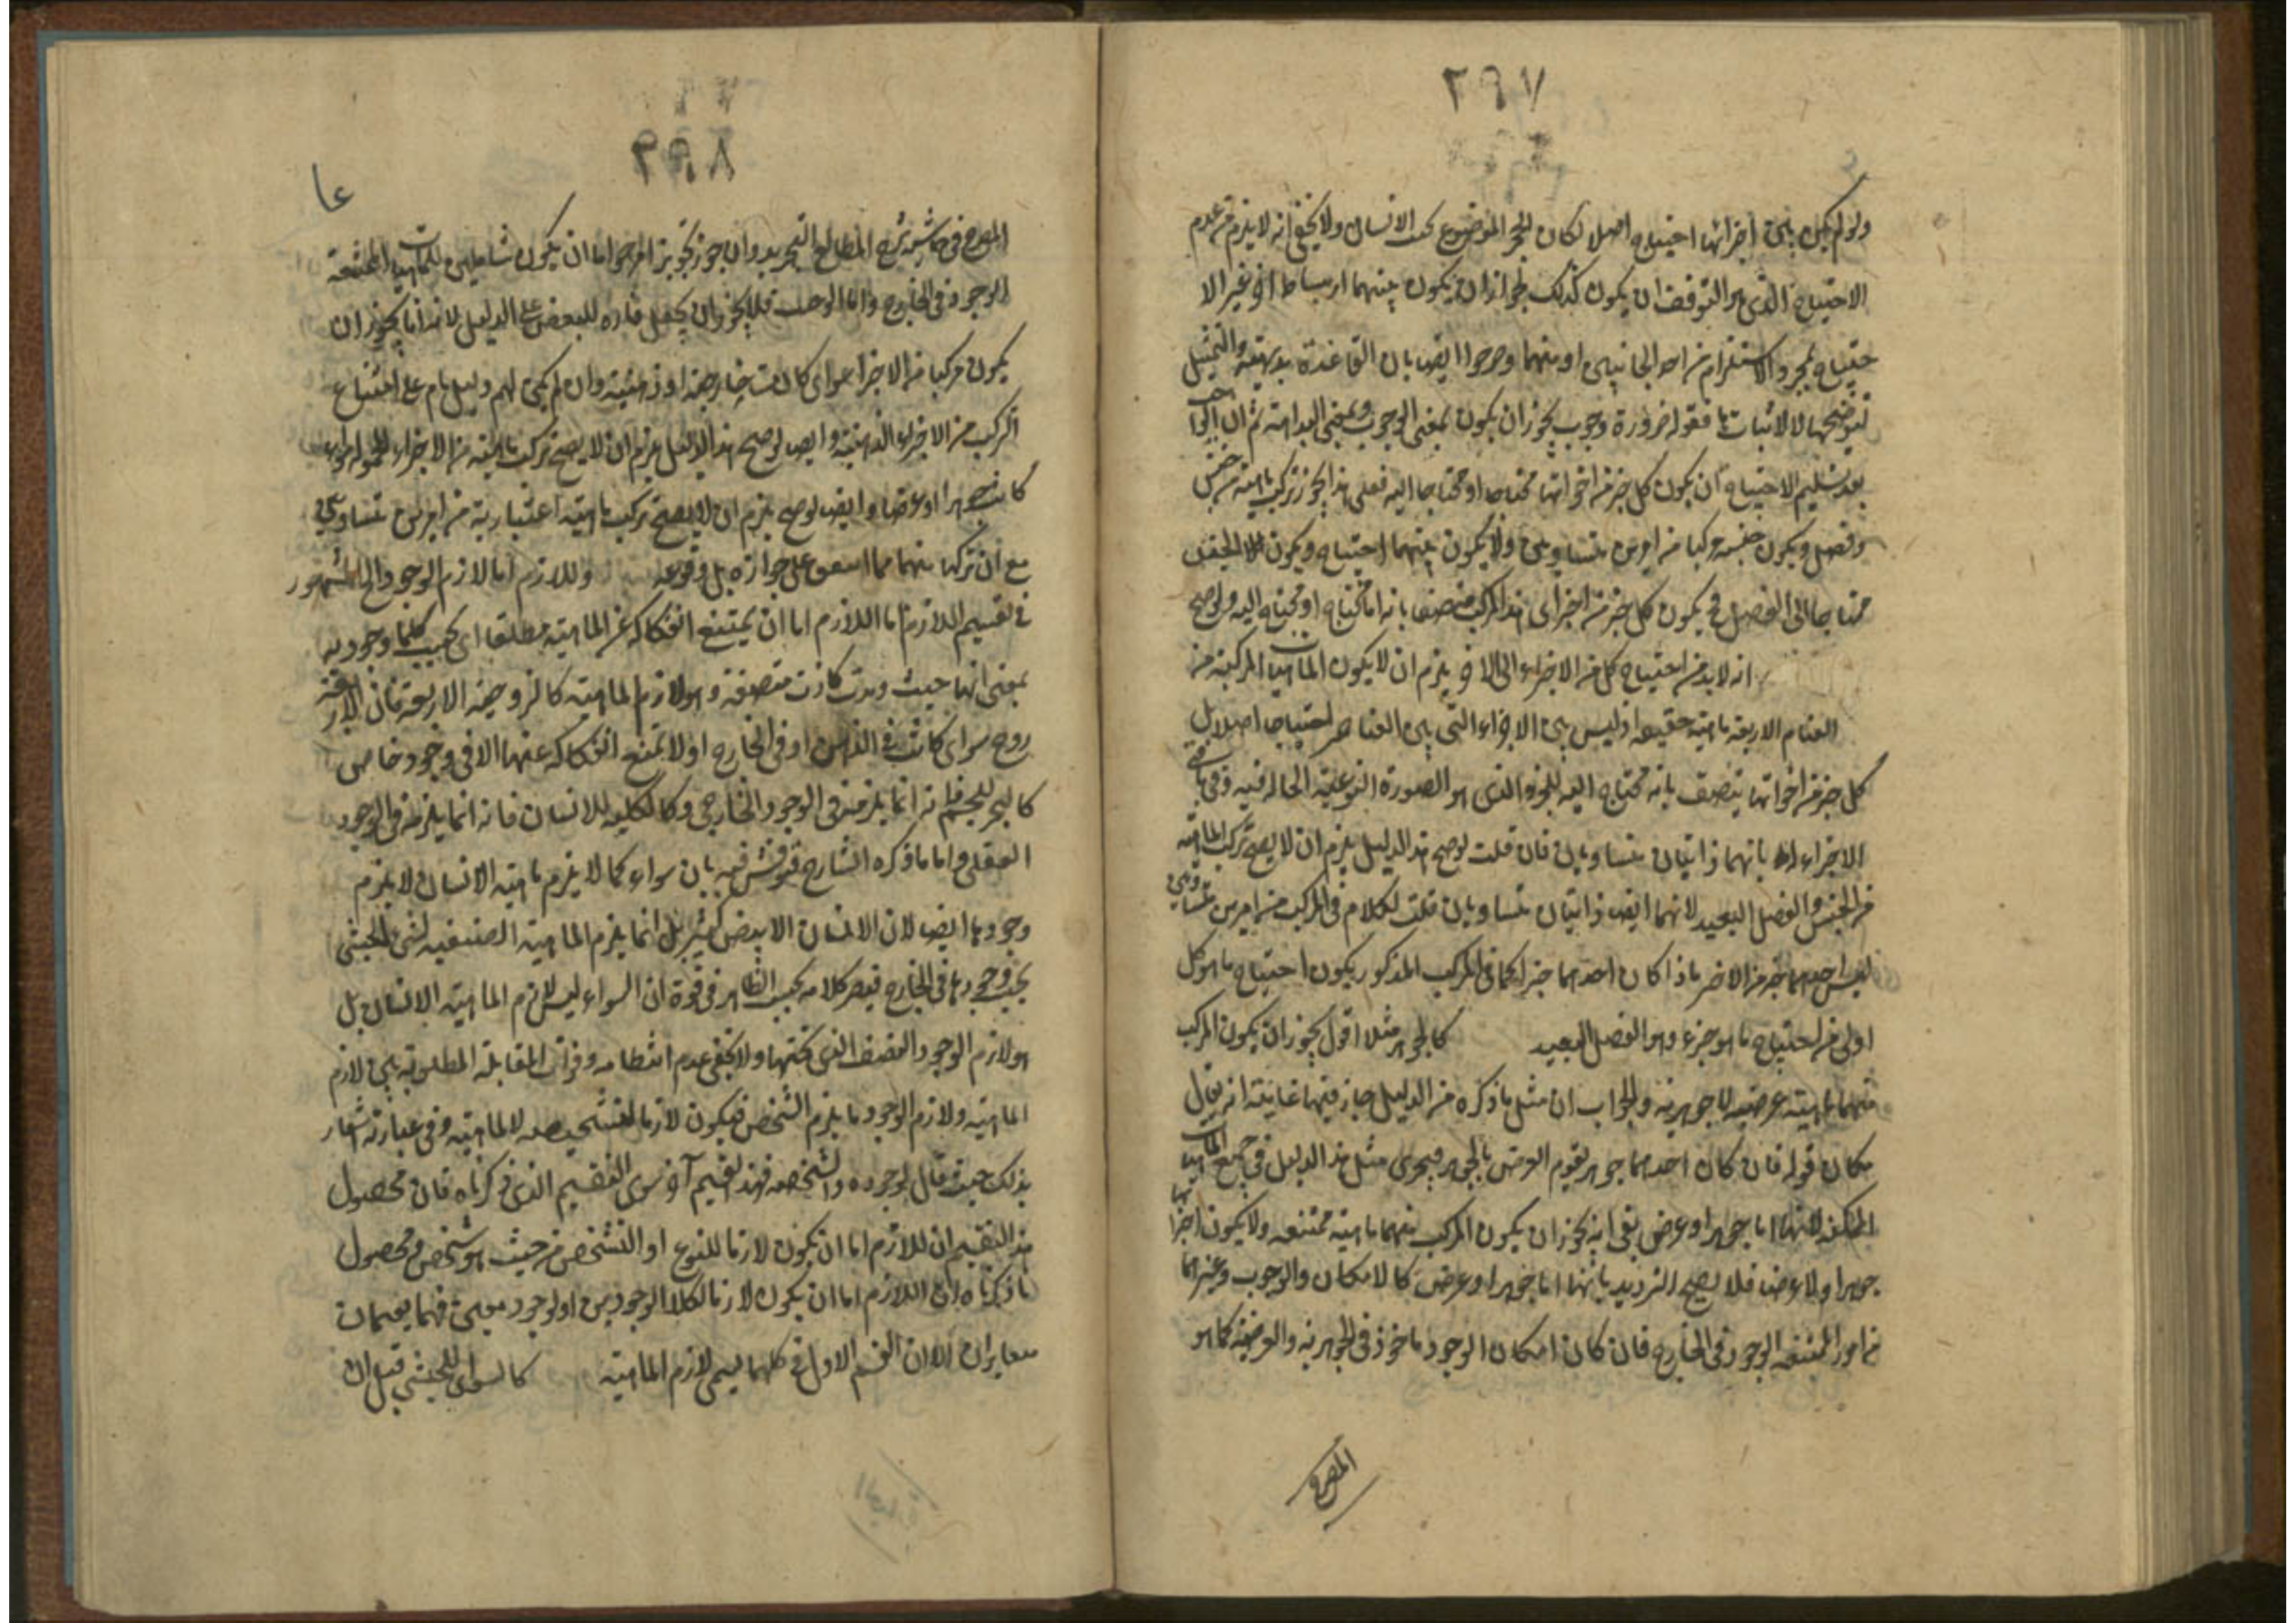 ٢٩٧
ولو لم يكن بين اجزائها احتياج اصلا لكان كالحجر الموضوع بجنب الانسان ولا يخفى انه لا يلزم من عدم
الاحتياج الذي هو التوقف ان يكون كذلك لجواز ان يكون بينهما ارتباط اخر غير الا
حتياج بمجرد الاستلزام من احد الجانبين او منهما وصرحوا ايضا بان القاعدة بديهية والتمثيل
لتوضيحها لا لاثباتها فقوله ضرورة وجوب يجوز ان يكون بمعنى الوجوب وبمعنى البداهة ثم ان
بعد تسليم الاحتياج ان يكون كل جزء من اجزائها محتاجا او محتاجا اليه فعلى هذا يجوز تركب ماهية من جنس
وفصل ويكون جنسه مركبا من امرين متساويين ولا يكون بينهما احتياج ويكون
محتاجا الى الفصل فيكون كل جزء من اجزاء هذا المركب متصفا بانه اما محتاج او محتاج اليه ولو صح
انه لا بد من احتياج كل من الاجزاء الى الاخر يلزم ان لا يكون الماهيات المركبة من
العناصر الاربعة ماهية حقيقية اذ ليس بين الاجزاء التي هي العناصر احتياج اصلا بل
كل جزء من اجزائها يتصف بانه محتاج اليه للجزء الذي هو الصورة النوعية الحالة فيه
الاجزاء بانهما ذاتيان متساويان فان قلت لو صح هذا الدليل يلزم ان لا يصح تركب الماهية
من الجنس والفصل البعيد لانهما ايضا ذاتيان متساويان قلت الكلام في المركب من امرين متساويين
ليس احدهما جزء من الاخر فاذا كان احدهما جزء كما في المركب المذكور يكون احتياج ما هو كل
اولى من احتياج ما هو جزء وهو الفصل البعيد كالجوهر مثلا اقول يجوز ان يكون المركب
منهما ماهية عرضية لا جوهرية والجواب ان مثل ما ذكره من الدليل جاز فيها غايته انه يقال
مكان قوله فان كان احدهما جوهر يقوم العرض بالجوهر فيجرى مثل هذا الدليل في جميع الماهيات
الممكنة لانها اما جوهر او عرض بقي انه يجوز ان يكون المركب منهما ماهية ممتنعة ولا يكون اجزائها
جوهرا ولا عرضا فلا يصح الترديد بانها اما جوهر او عرض كالامكان والوجوب وغيرهما
من امور الممتنعة الوجود في الخارج فان كان امكان الوجود ماخوذ في الجوهرية والعرضية كما هو
المصرح
٢٩٨
المصرح في حاشية شرح المطالع التجريد وان جوز اما ان يكون شاملين للماهيات الممتنعة
الوجود في الخارج واما الوحدة فلا يجوز ان يجعل مادة للبعض على الدليل لانه انما يجوز ان
يكون مركبا من الاجزاء سواء كانت خارجية او ذهنية وان لم يكن لهم دليل تام على امتناع
التركب من الاجزاء الذهنية وايضا لو صح هذا الدليل لزم ان لا يصح تركب ماهية من الاجزاء المحمولة سواء
كانت جوهرا او عرضا وايضا لو صح يلزم ان لا يصح تركب ماهية اعتبارية من امرين متساويين
مع ان تركبها منهما مما اتفق على جوازه بل وقوعه واللازم اما لازم الوجود الخ المشهور
في تقسيم اللازم اما اللازم اما ان يمتنع انفكاكه عن الماهية مطلقا اي بحسب كلا وجوديه
بمعنى انها حيث وجدت كانت متصفة به ولازم الماهية كالزوجية الاربعة فان الاربعة
زوج سواء كانت في الذهن او في الخارج او لا يمتنع انفكاكه عنها الا في وجود خاص
كالتحيز للجسم فانه انما يلزمه في الوجود الخارجي وكالكلية للانسان فانه انما يلزمه في الوجود
العقلي واما ما ذكره الشارح فنوقش فيه بان سواد كما لا يلزم ماهية الانسان لا يلزم
وجودها ايضا لان الانسان الابيض كثير بل انما يلزم الماهية الصنفية للحبشي
بحسب وجودها في الخارج فيصير كلامه بحسب الظاهر في قوة ان السواد ليس لازم الماهية الانسان بل
هو لازم الوجود الصنف الذي تحتها ولا يخفى عدم انتظامه وفوات المقابلة المطلوبة بين لازم
الماهية ولازم الوجود ما يلزم الشخص فيكون لازما لتشخصه لا للماهية وفي عبارته اشعار
بذلك حيث قال لوجوده والشخصه فهذا تقسيم اخر سوى التقسيم الذي ذكرناه فان محصول
هذا التقسيم ان اللازم اما ان يكون لازما للنوع او التشخص من حيث هو شخص ومحصول
ما ذكرناه ان اللازم اما ان يكون لازما لكلا الوجودين او لوجود معين فهما تقسيمان
متغايران الا ان القسم الاول في كلهما يسمى لازم الماهية كالسواد للحبشي قيل ان